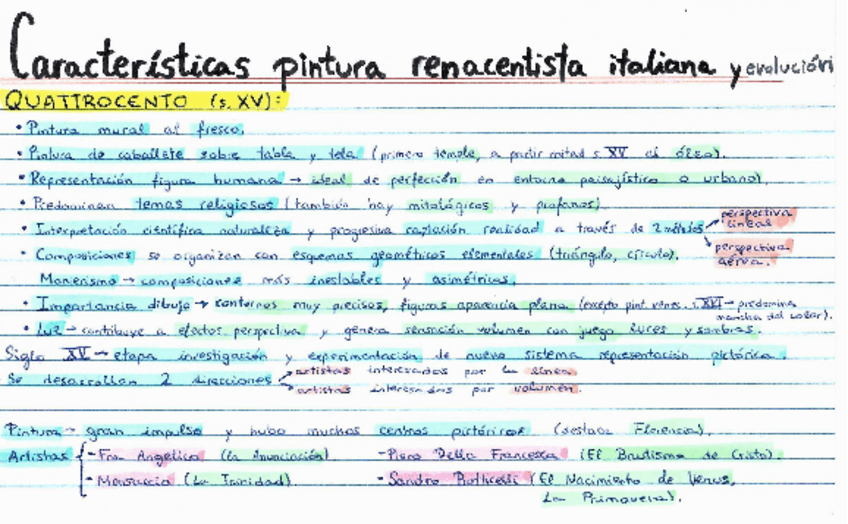 Características pintura renacentista italiana y evolución
QUATTROCENTO (s. XV):
• Pintura mural al fresco.
• Pintura de caballete sobre tabla y tela (primero temple, a partir mitad s. XV al óleo).
• Representación figura humana → ideal de perfección en entorno paisajístico o urbano).
• Predominan temas religiosos (también hay mitológicos y profanos).
• Interpretación científica naturaleza y progresiva captación realidad a través de 2 métodos perspectiva lineal
perspectiva aérea.
• Composiciones se organizan con esquemas geométricos elementales (triángulo, círculo).
Manierismo → composiciones más inestables y asimétricas.
• Importancia dibujo → contornos muy precisos, figuras apariencia plana (excepto pint. venec. s. XVI → predomina
mancha del color).
• Luz → contribuye a efectos perspectiva y genera sensación volumen con juego luces y sombras.
Siglo XV → etapa investigación y experimentación de nuevo sistema representación pictórica.
Se desarrollan 2 direcciones artistas interesados por la línea
artistas interesados por volumen.
Pintura → gran impulso y hubo muchos centros pictóricos (destaca Florencia).
Artistas - Fra Angelico (La Anunciación) - Piero Della Francesca (El Bautismo de Cristo).
- Massaccio (La Trinidad). - Sandro Botticelli (El Nacimiento de Venus,
La Primavera).